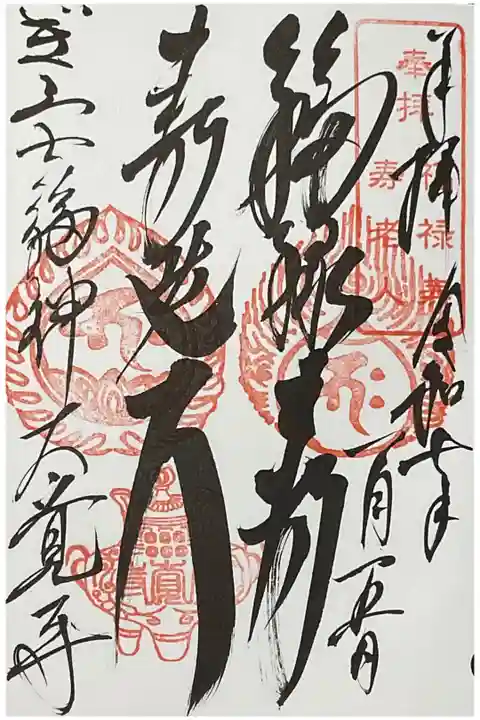 奉拝 令和七年
一月一五日
奉拝 福禄壽
寿老人
福禄寿
寿老人
福神 大覚寺